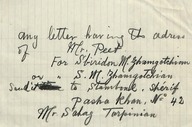 any letter having ts adress
of Mr. Peet
For Sbiridon M. Ghamgotchian
or " S. M. Ghamgotchian
Send it to Stamboul, Sherif
Pasha Khan, No 42
Mr. Sahag Torpinian